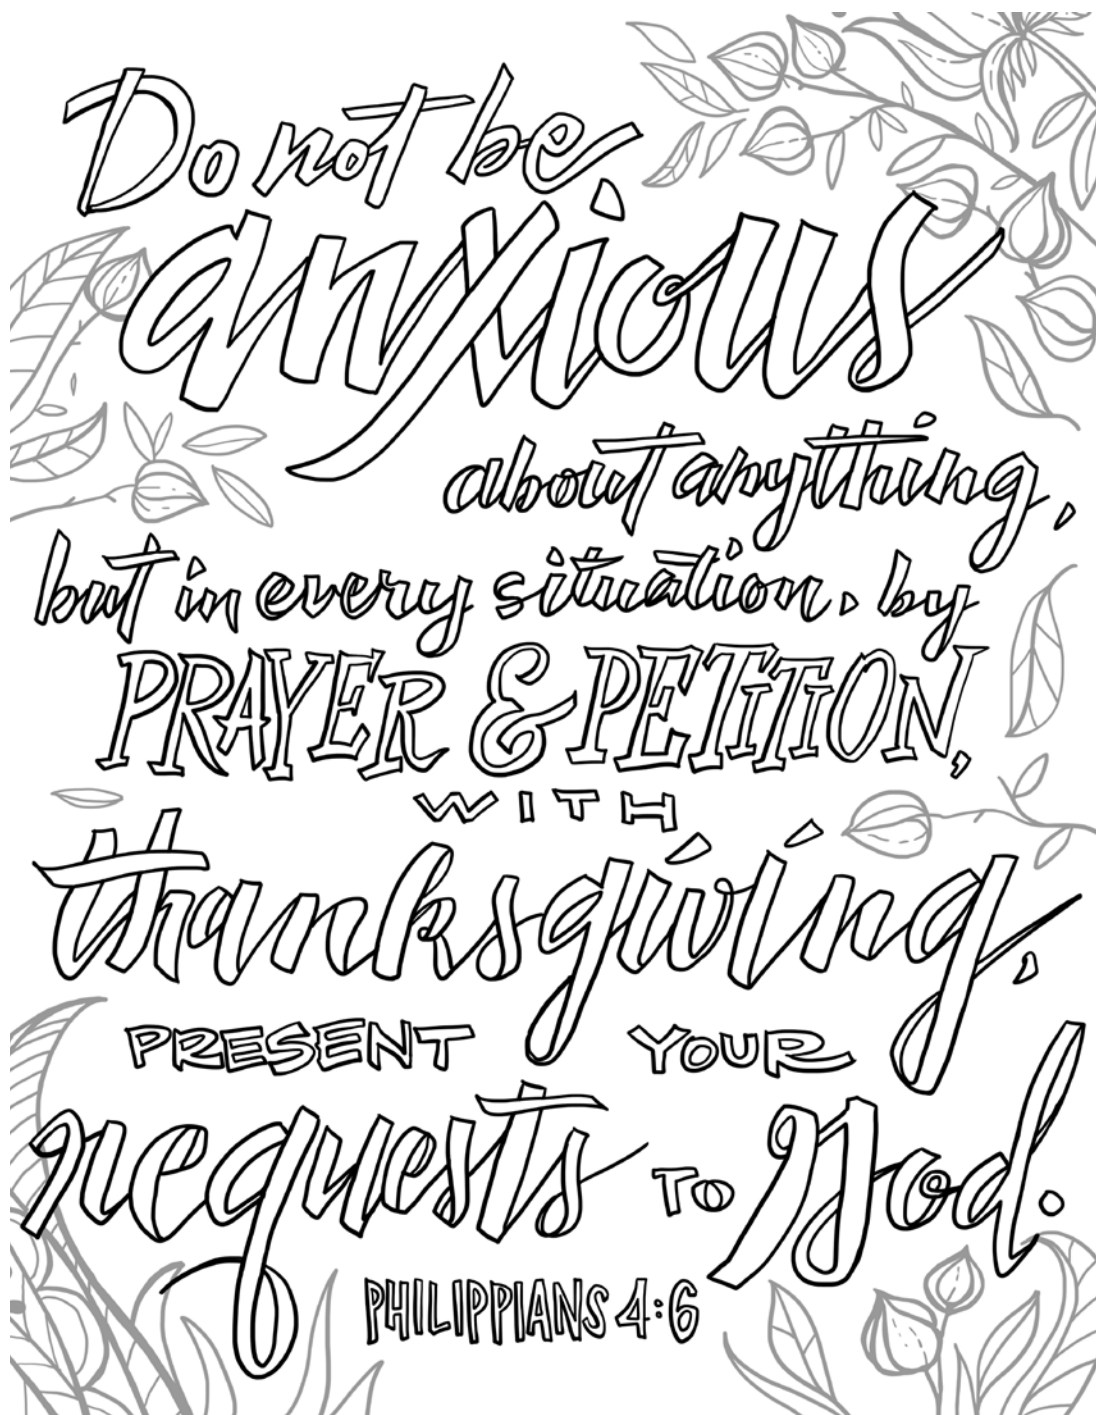 Do not be
anxious
about anything,
but in every situation, by
PRAYER & PETITION,
WITH
thanksgiving,
PRESENT YOUR
requests TO God.
PHILIPPIANS 4:6